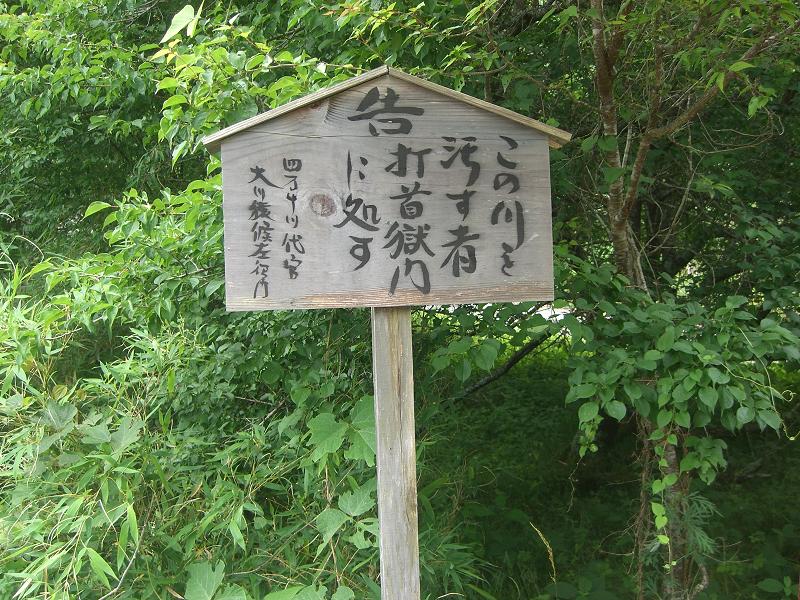 告
この川を
汚す者
打首獄門
に処す
四万十川代官
大川猿候左衛門